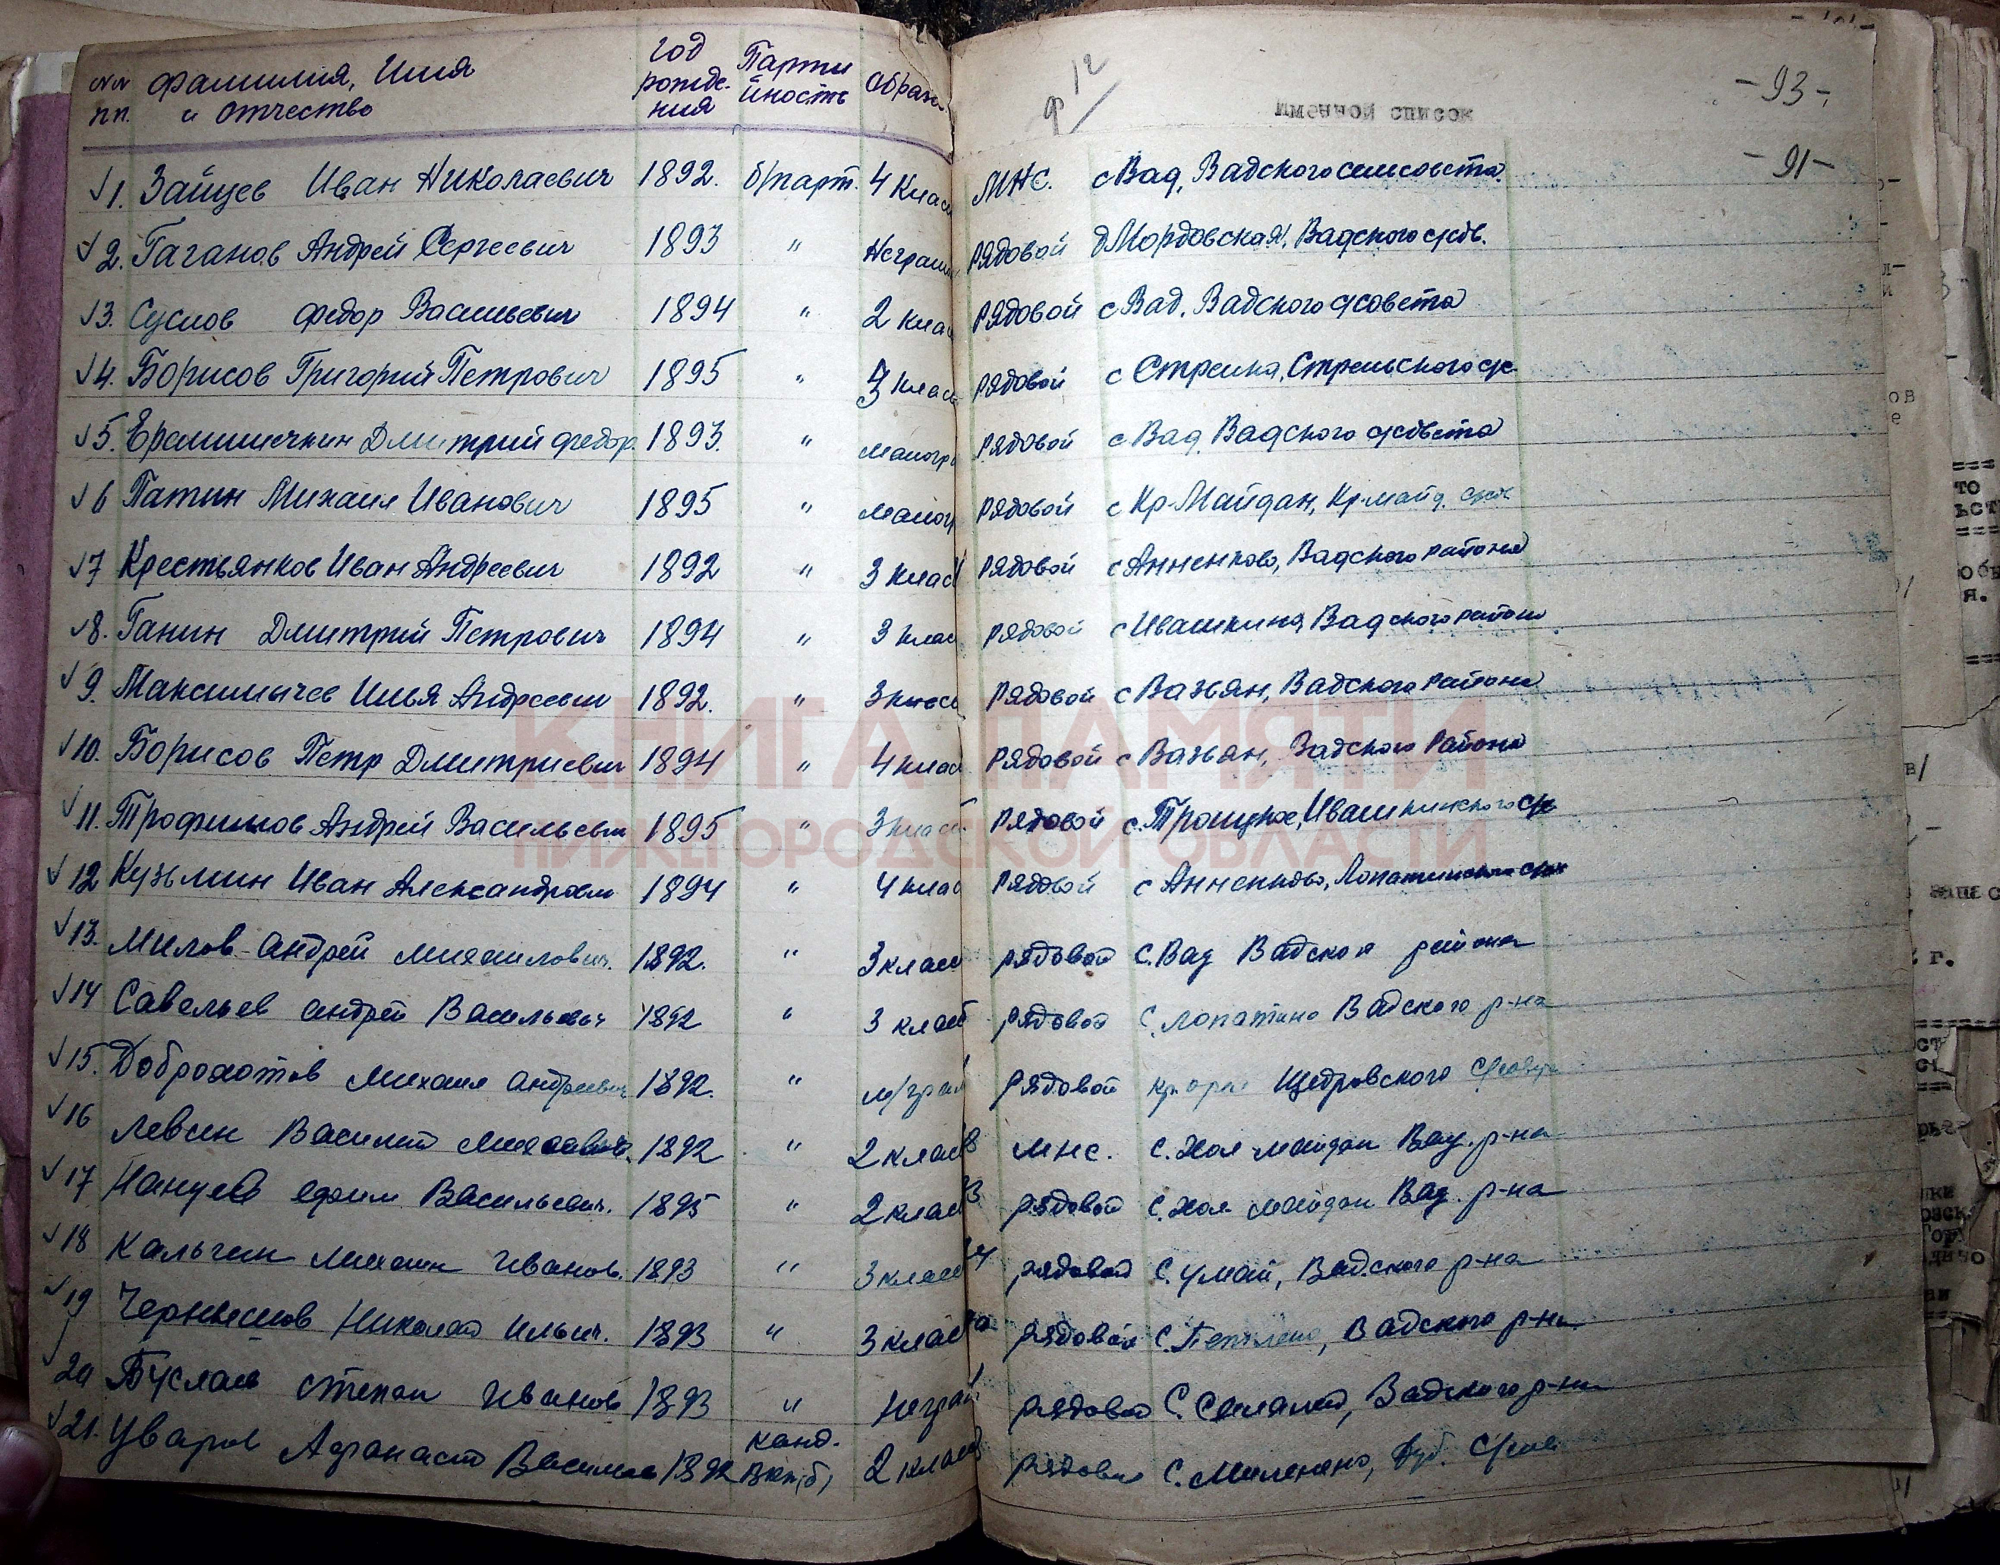 №№ Фамилия, Имя Год Парти Образ
пп. и Отчество рожде- йность
ния
Ф 12
Именной список
-93-
-91-
1. Зайцев Иван Николаевич 1892. б/парт. 4 Клас МНС. с Вад, Вадского сельсовета.
2. Гаганов Андрей Сергеевич 1893 " Неграм рядовой д Мордовская, Вадского с/сов.
3. Суслов Федор Васильевич 1894 " 2 клас рядовой с Вад, Вадского с/совета
4. Борисов Григорий Петрович 1895 " 7 клас рядовой с Стрелка, Стрельского с/с
5. Ерамишечкин Дмитрий Федор. 1893. " малогр рядовой с Вад, Вадского с/совета
6 Патин Михаил Иванович 1895 " малогр рядовой с Кр-Майдан, Кр-майд. с/сов
7 Крестьянков Иван Андреевич 1892 " 3 клас рядовой с Анненково, Вадского района
8. Ганин Дмитрий Петрович 1894 " 3 клас рядовой с Ивашкина, Вадского района
9. Максимычев Илья Андреевич 1892. " 3 класс рядовой с Вазьян, Вадского района
10. Борисов Петр Дмитриевич 1894 " 4 клас рядовой с Вазьян, Вадского района
КНИГА ПАМЯТИ
11. Трофимов Андрей Васильевич 1895 " 3 клас рядовой с. Троицкое, Ивашкинского с/с
НИЖЕГОРОДСКОЙ ОБЛАСТИ
12 Кузьмин Иван Александрович 1894 " 4 клас рядовой с Анненково, Лопатинского
13. Милов Андрей Михайлович. 1892. " 3 класс рядовой С. Вад Вадского района
14 Савельев Андрей Васильевич 1892 " 3 класс рядовой С. Лопатино Вадского р-на
15. Доброхотов Михаил Андреевич 1892. " м/грам рядовой Щедровского
16 Левин Василий 1892 " 2 класс мнс. С. Хол майдан Вад. р-на
17 Ефим Васильевич. 1895 " 2 класс рядовой С. Хол майдан Вад. р-на
18 Кальчин Михаил Иванов. 1893 " 3 класс рядовой С. Умай, Вадского р-на
19 Чернышов Николай Ильич. 1893 " 3 класс рядовой С. Петлино, Вадского р-на
20 Буслаев Степан Иванов 1893 " неграм рядовой С. Вадского р-на
21. Уваров Афанасий Васильев 1892 канд. ВКП(б) 2 класс рядовой С.